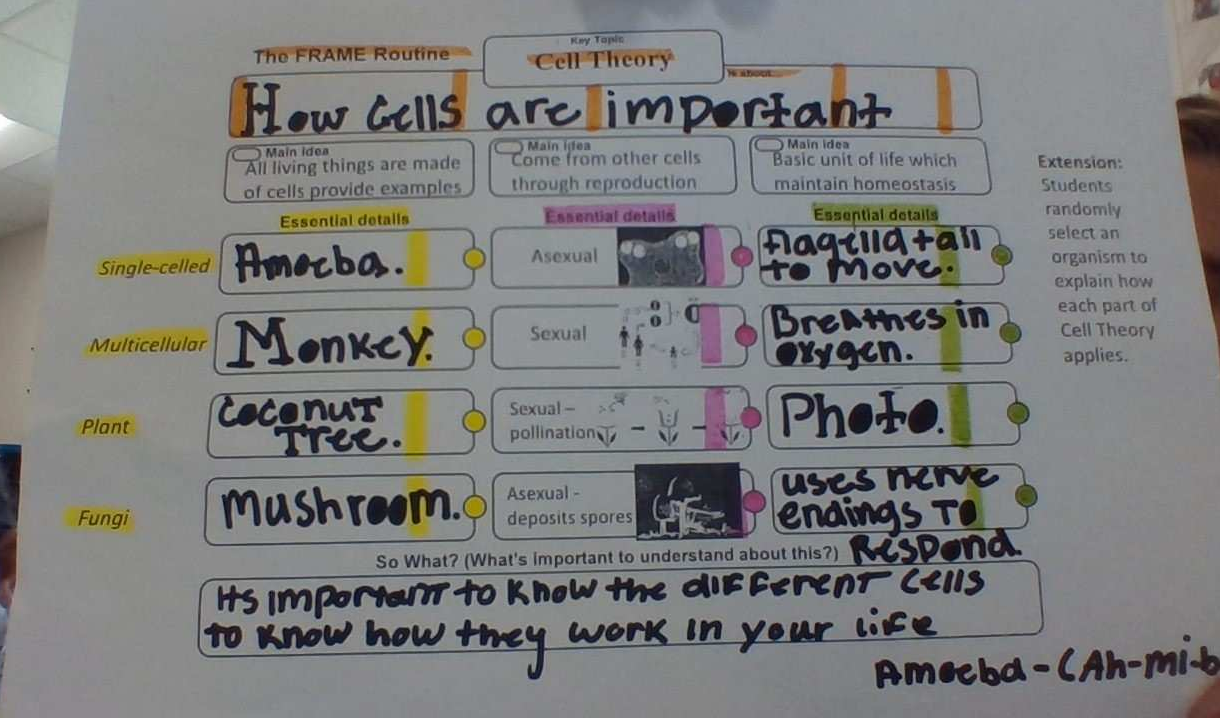 Key Topic
The FRAME Routine
Cell Theory
is about...
How Cells are important
Main idea
All living things are made
of cells provide examples
Main idea
Come from other cells
through reproduction
Main idea
Basic unit of life which
maintain homeostasis
Extension:
Students
randomly
select an
organism to
explain how
each part of
Cell Theory
applies.
Essential details
Essential details
Essential details
Single-celled
Amoeba.
Asexual
flagella tail
to move.
Multicellular
Monkey.
Sexual
Breathes in
oxygen.
Plant
Coconut
Tree.
Sexual –
pollination
Photo.
Fungi
Mushroom.
Asexual -
deposits spores
uses nerve
endings To
Respond.
So What? (What's important to understand about this?)
Its important to know the different cells
to know how they work in your life
Amoeba - (Ah-mi-b